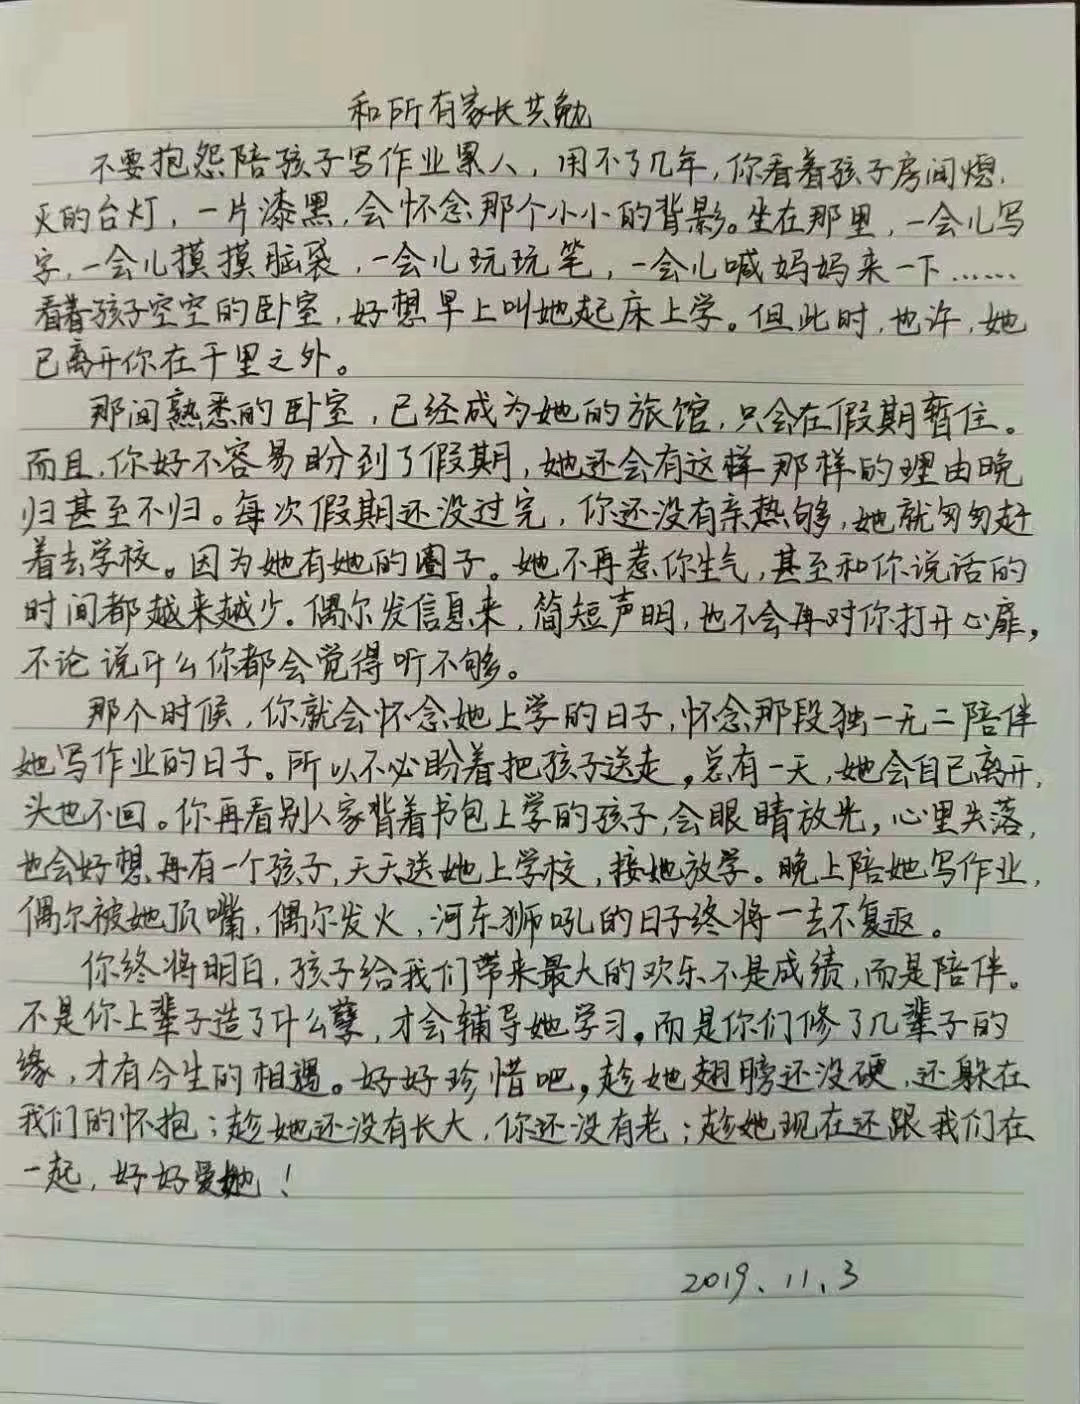 和所有家长共勉
不要抱怨陪孩子写作业累人，用不了几年，你看着孩子房间熄
灭的台灯，一片漆黑，会怀念那个小小的背影。坐在那里，一会儿写
字，一会儿摸摸脑袋，一会儿玩玩笔，一会儿喊妈妈来一下……
看着孩子空空的卧室，好想早上叫她起床上学。但此时，也许，她
已离开你在千里之外。
那间熟悉的卧室，已经成为她的旅馆，只会在假期暂住。
而且，你好不容易盼到了假期，她还会有这样那样的理由晚
归甚至不归。每次假期还没过完，你还没有亲热够，她就匆匆赶
着去学校。因为她有她的圈子。她不再惹你生气，甚至和你说话的
时间都越来越少。偶尔发信息来，简短声明，也不会再对你打开心扉，
不论说什么你都会觉得听不够。
那个时候，你就会怀念她上学的日子，怀念那段独一无二陪伴
她写作业的日子。所以不必盼着把孩子送走，总有一天，她会自己离开，
头也不回。你再看别人家背着书包上学的孩子，会眼睛放光，心里失落，
也会好想再有一个孩子，天天送她上学校，接她放学。晚上陪她写作业，
偶尔被她顶嘴，偶尔发火，河东狮吼的日子终将一去不复返。
你终将明白，孩子给我们带来最大的欢乐不是成绩，而是陪伴。
不是你上辈子造了什么孽，才会辅导她学习。而是你们修了几辈子的
缘，才有今生的相遇。好好珍惜吧，趁她翅膀还没硬，还躲在
我们的怀抱；趁她还没有长大，你还没有老；趁她现在还跟我们在
一起，好好爱她！
2019、11、3